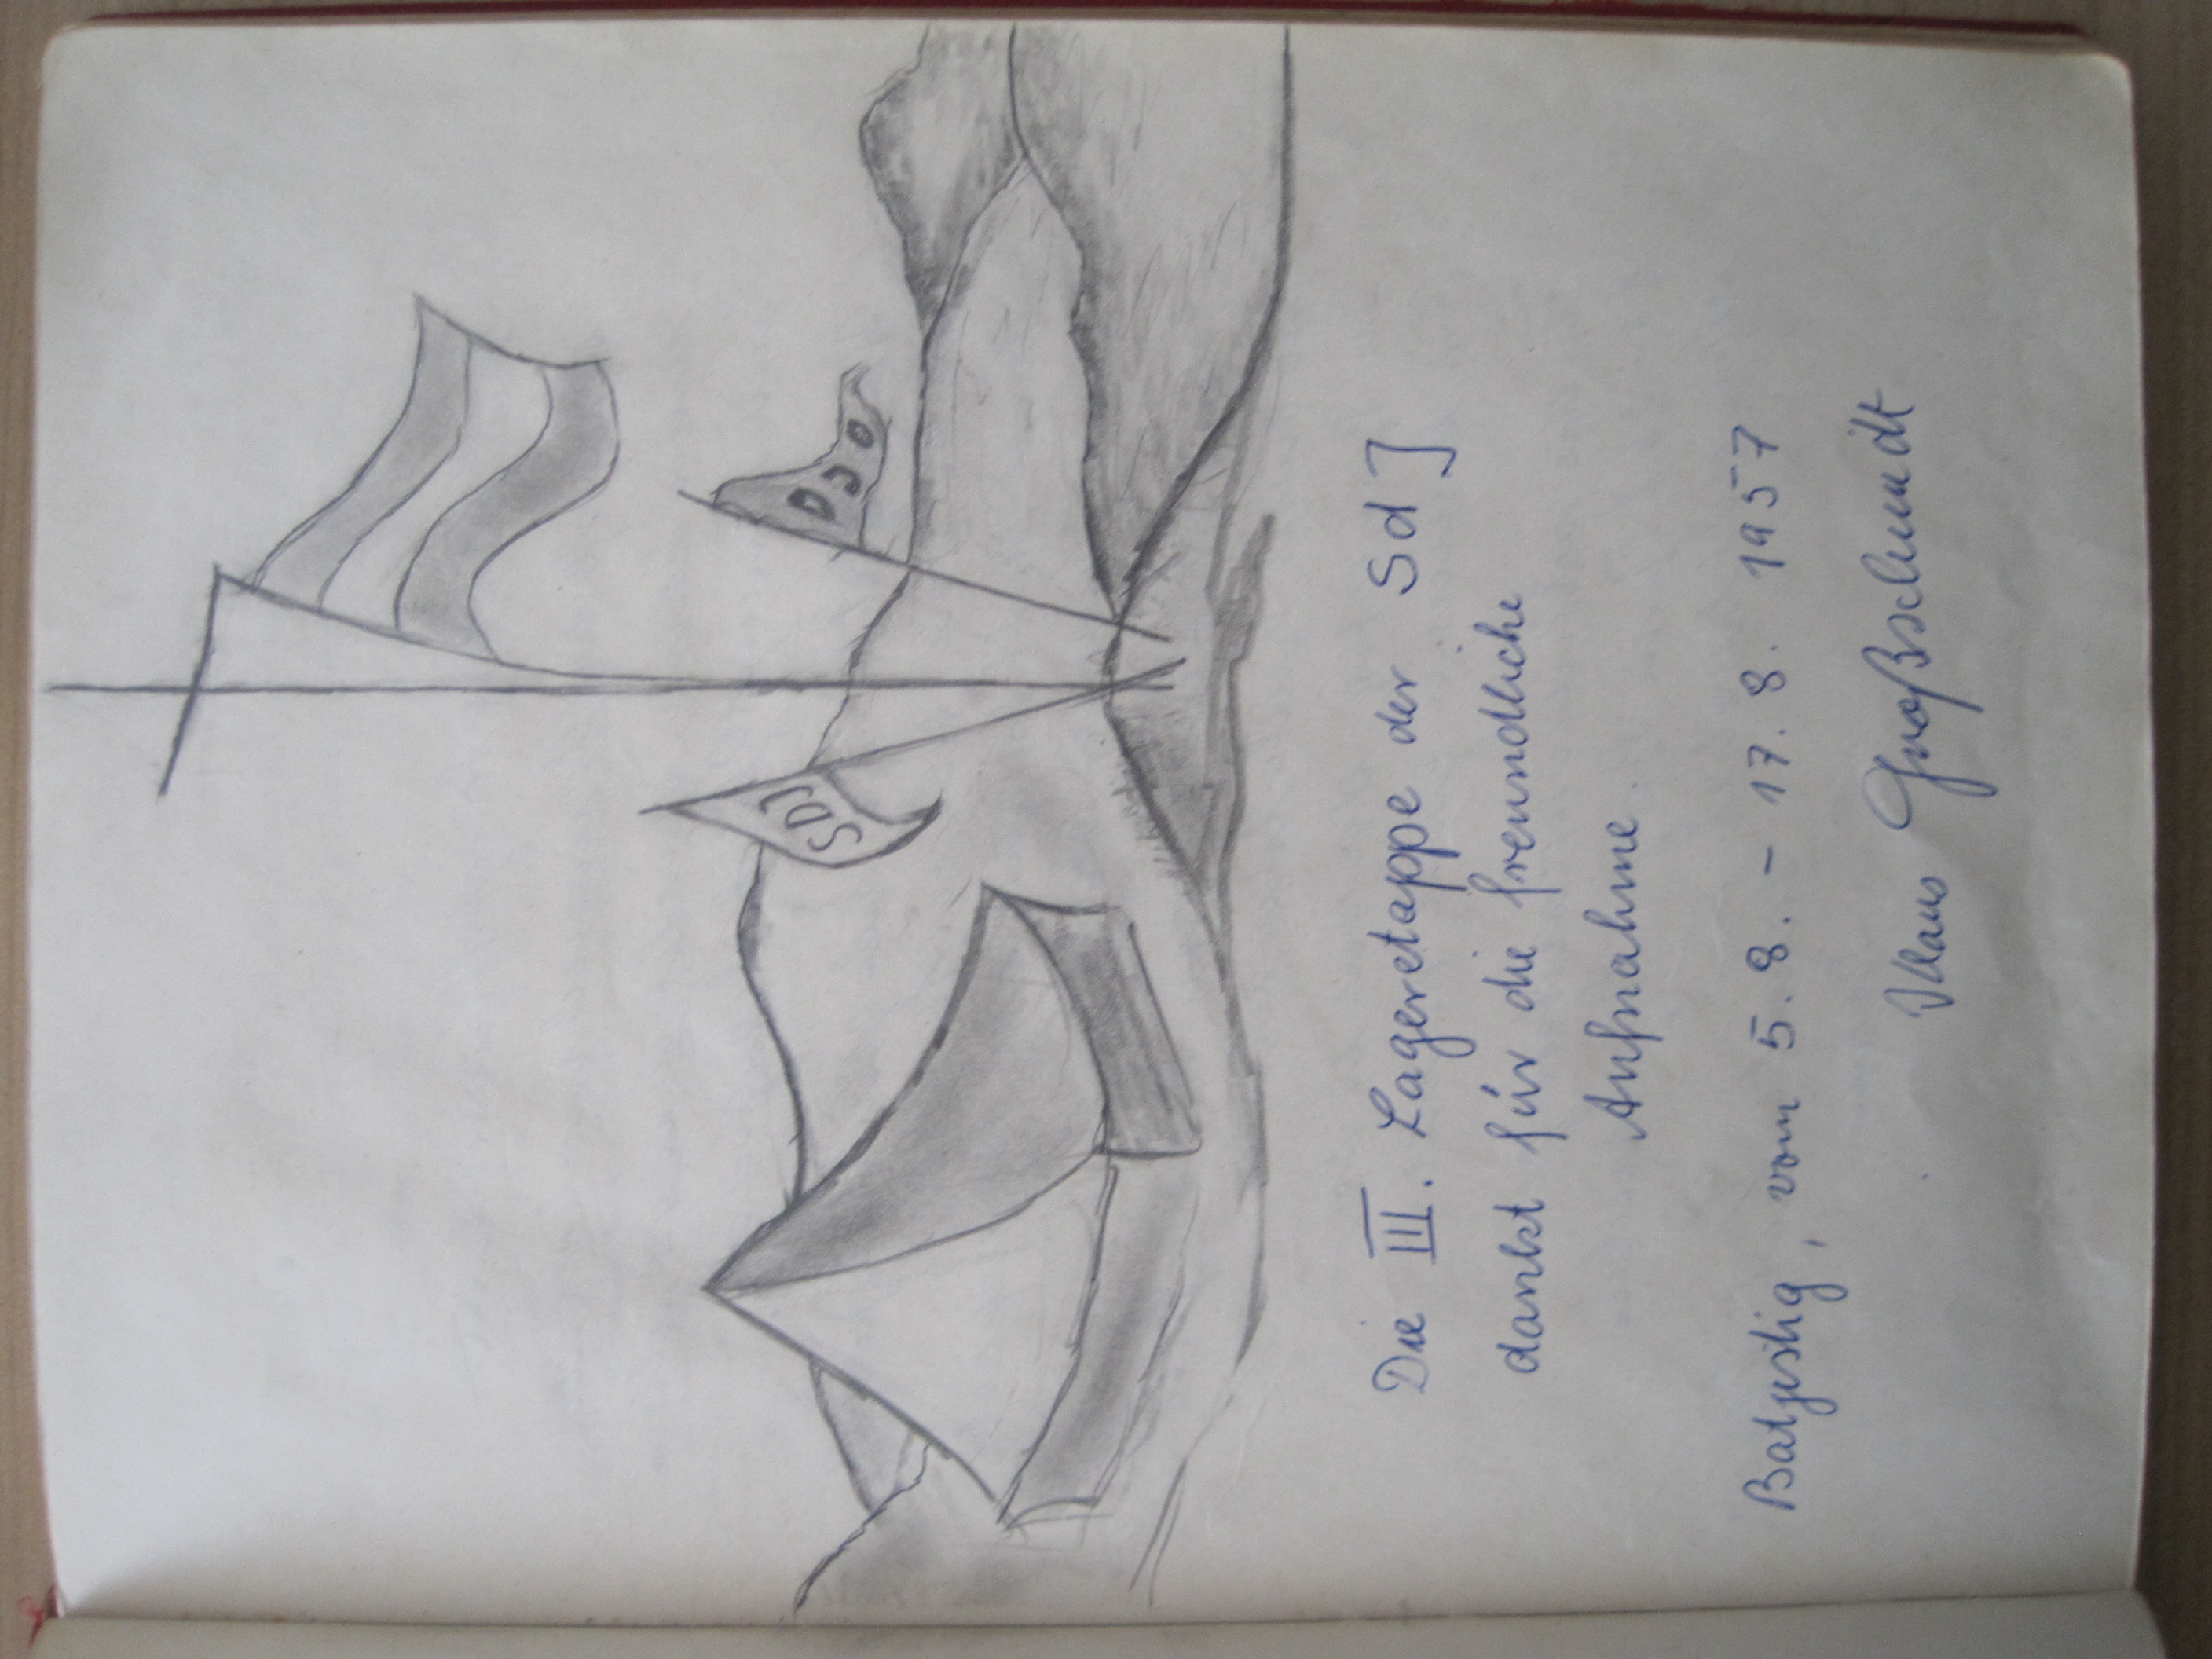 SDJ
DJO
Die III. Lageretappe der SdJ
dankt für die freundliche
Aufnahme.
vom 5.8. - 17.8. 1957
Klaus Großschmidt